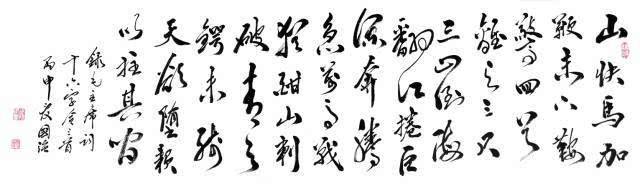 山快馬加
鞭未下鞍
驚回首
離天三尺
三山倒海
翻江捲巨
瀾奔騰
急萬馬戰
猶酣山刺
破青天
鍔未殘
天欲墮賴
以拄其間
錄毛主席詞
十六字令三首
丙申國治